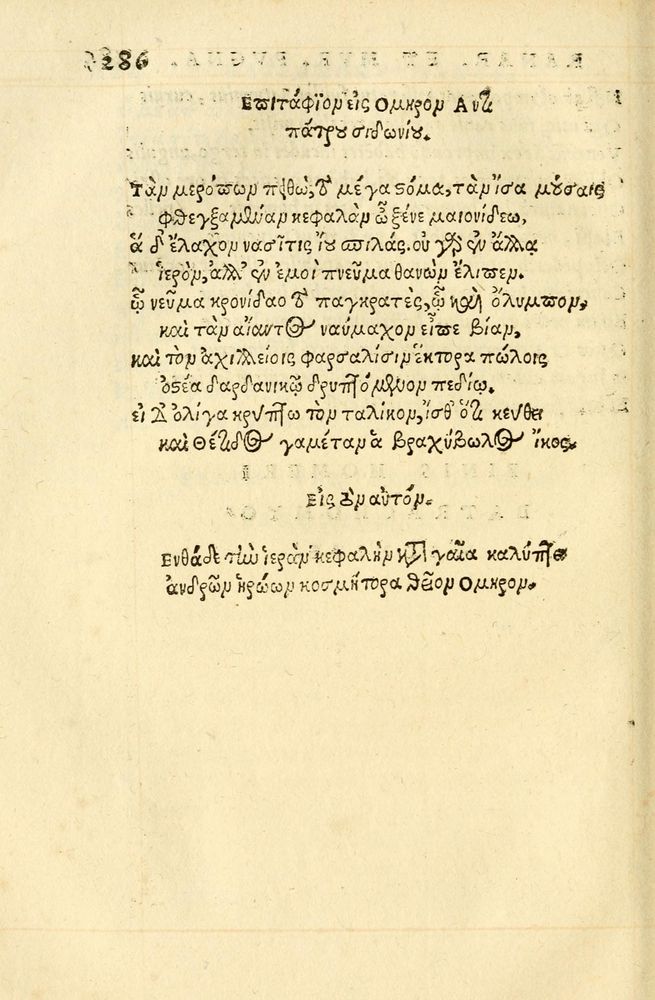 286
Επιτάφϊον εἰς Ομηρον Αντι
πάτρου σιδωνίου.
τὰν μερόπων πειθὼ, τὸ μέγα στόμα, τὰν ἴσα μούσαις
φθεγξαμέναν κεφαλὰν ὦ ξένε μαιονίδεω,
ἅ δ᾽ ἔλαχον νασῖτις ἴου σπιλάς. οὐ γὰρ ἐν ἄλλᾳ
ἱερὸν, ἀλλ᾽ ἐν ἐμοὶ πνεῦμα θανὼν ἔλιπεν.
ᾧ νεῦμα κρονίδαο τὸ παγκρατὲς, ᾧ καὶ ὄλυμπον,
καὶ τὰν αἴαντος ναύμαχον εἶπε βίαν,
καὶ τὸν ἀχιλλείοις φαρσαλίσιν ἕκτορα πώλοις
ὀστέα δαρδανικῷ δρυπτόμενον πεδίῳ.
εἰ δ᾽ ὀλίγα κρύπτω τὸν ταλίκον, ἴσθ᾽ ὅτι κεύθει
καὶ Θέτιδος γαμέταν ἁ βραχύβωλος ἴκος.
Εἰς τὸν αὐτόν.
Ενθάδε τὴν ἱερὰν κεφαλὴν κατὰ γαῖα καλύπτει
ἀνδρῶν ἡρώων κοσμήτορα θεῖον Ομηρον.